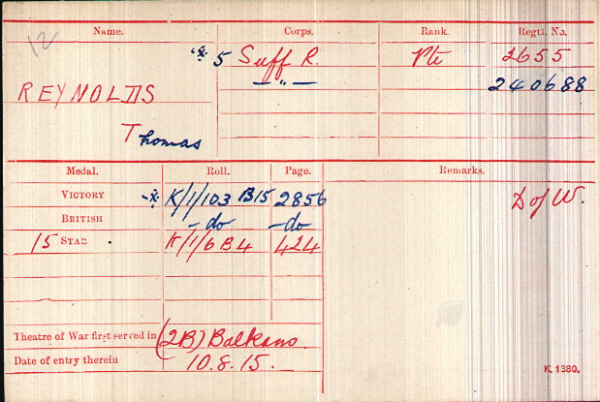 12
Name. Corps. Rank. Regtl. No.
* 5 Suff R. Pte 2655
REYNOLDS — " — 240688
Thomas
Medal. Roll. Page. Remarks.
VICTORY * K/1/103 B15 2856 D of W.
BRITISH - do - do
15 STAR K/1/6 B4 424
Theatre of War first served in (2B) Balkans
Date of entry therein 10.8.15.
K 1380.